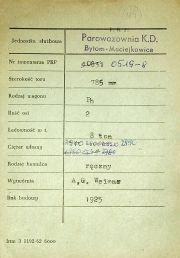 Jednostka służbowa
Parowozownia K.D.
Bytom-Maciejkowice
Nr inwentarza PKP
0519-8
Szerokość toru
785 mm
Rodzaj wagonu
Ph
Ilość osi
2
Ładowność w t.
8 ton
Ciężar własny
Rodzaj hamulca
ręczny
Wytwórnia
A.G. Weimar
Rok budowy
1925